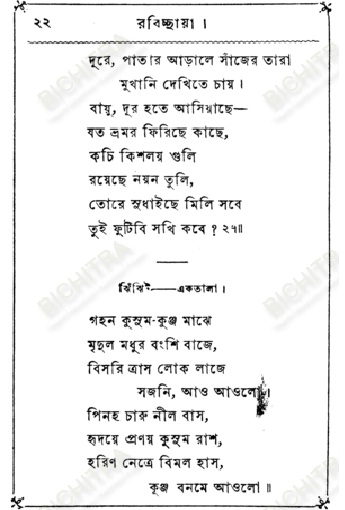 ২২
রবিচ্ছায়া ।
দূরে, পাতার আড়ালে সাঁজের তারা
মুখানি দেখিতে চায় ।
বায়ু, দূর হতে আসিয়াছে—
যত ভ্রমর ফিরিছে কাছে,
কচি কিশলয় গুলি
রয়েছে নয়ন তুলি,
তোরে সুধাইছে মিলি সবে
তুই ফুটিবি সখি কবে ? ২৭॥
ঝিঁঝিট—একতালা ।
গহন কুসুম-কুঞ্জ মাঝে
মৃদুল মধুর বংশি বাজে,
বিসরি ত্রাস লোক লাজে
সজনি, আও আওলো
পিনহ চারু নীল বাস,
হৃদয়ে প্রণয় কুসুম রাশ,
হরিণ নেত্রে বিমল হাস,
কুঞ্জ বনমে আওলো ॥
BICHITRA
BICHITRA
BICHITRA